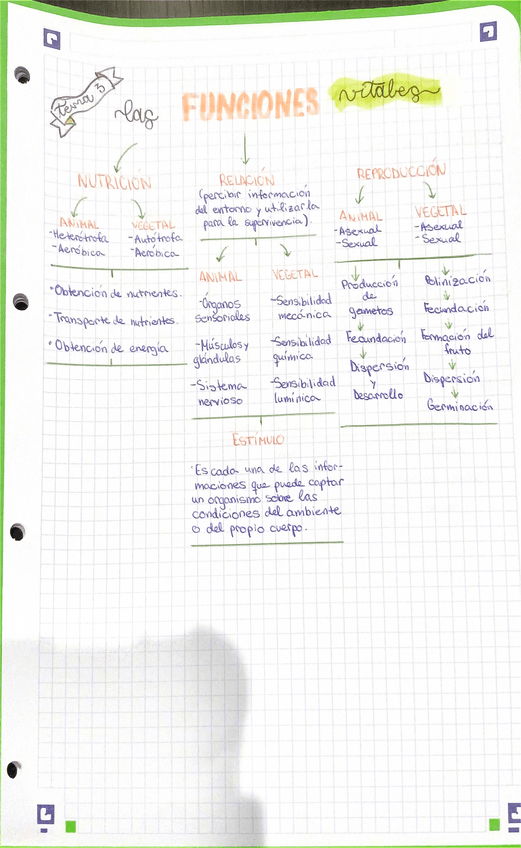 tema 3
las FUNCIONES vitales
NUTRICIÓN
ANIMAL
-Heterótrofa
-Aeróbica
VEGETAL
-Autótrofa
-Aeróbica
·Obtención de nutrientes.
·Transporte de nutrientes.
·Obtención de energía
RELACIÓN
(percibir información
del entorno y utilizarla
para la supervivencia).
ANIMAL
-Órganos
sensoriales
-Músculos y
glándulas
-Sistema
nervioso
VEGETAL
-Sensibilidad
mecánica
-Sensibilidad
química
-Sensibilidad
lumínica
ESTÍMULO
·Es cada una de las infor-
maciones que puede captar
un organismo sobre las
condiciones del ambiente
o del propio cuerpo.
REPRODUCCIÓN
ANIMAL
-Asexual
-Sexual
VEGETAL
-Asexual
-Sexual
Producción
de
gametos
Fecundación
Dispersión
y
Desarrollo
Polinización
Fecundación
Formación del
fruto
Dispersión
Germinación